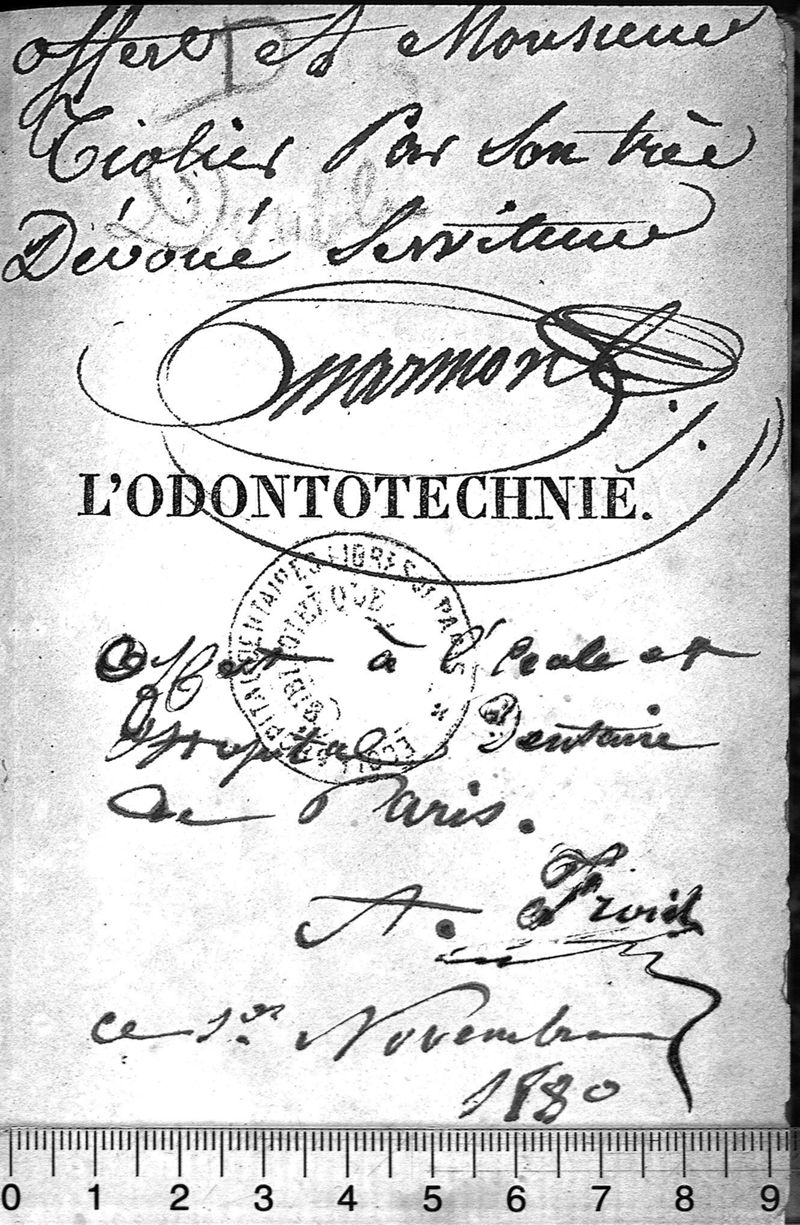 offert A Monsieur
D
Tiolier Par Son trèe
Double
Dévoué Serviteure
marmont
L'ODONTOTECHNIE.
HOPITAL DENTAIRES LIBRES DE PARIS
BIBLIOTHÈQUE
Offert à l'école et
hopital Dentaire
de Paris.
A. Froid
ce 1er Novembre
1880
0 1 2 3 4 5 6 7 8 9